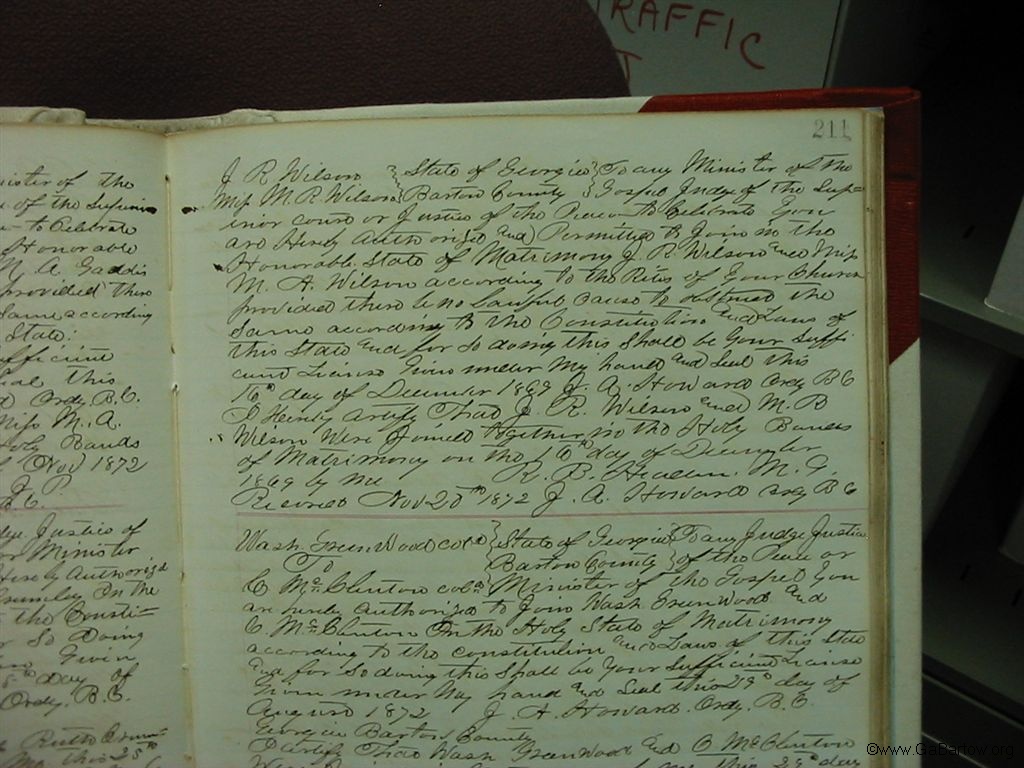 TRAFFIC
211
ister of the
of the Superior
to Celebrate
Honorable
A. Gaddis
provided there
same according
State.
sufficient
Seal this
Ordy. B.C.
Miss M. A.
Holy Bands
Nov 1872
J. P.
B.C.
Justice of
Minister
Hereby Authorized
in the
the Consti-
So Doing
Given
day of
Ordy. B.C.
Ruth
this 25th
J. R. Wilson } State of Georgia } To any Minister of the
Miss M. R. Wilson } Bartow County } Gospel Judge of the Supe-
rior court or Justice of the Peace to Celebrate You
are Hereby Authorized and Permitted to Join in the
Honorable State of Matrimony J. R. Wilson and Miss
M. A. Wilson according to the Rites of Your Church
provided there be no lawful Cause to obstruct the
Same according to the Constitution and Laws of
this State and for So doing this Shall be Your Suffi
cient License Given under My hand and Seal this
16th day of December 1869 J. A. Howard Ordy B C
I Hereby Certify That J. R. Wilson and M. R
Wilson Were Joined together in the Holy Bands
of Matrimony on the 16th day of December
1869 by me R. B. Headden. M. G.
Recorded Nov 20th 1872 J. A. Howard Ordy B C
Wash GreenWood cold } State of Georgia } To any Judge Justice
To } Bartow County } of the Peace or
C McClinton cold Minister of the Gospel You
are hereby authorized to Join Wash GreenWood and
C McClinton In the Holy State of Matrimony
according to the constitution and Laws of this State
and for So doing this Shall be Your Sufficient License
Given under My hand and Seal this 29th day of
August 1872 J. A. Howard. Ordy. B. C.
Georgia Bartow County
I Certify That Wash GreenWood and C McClinton
this 29th day
©www.GaBartow.org